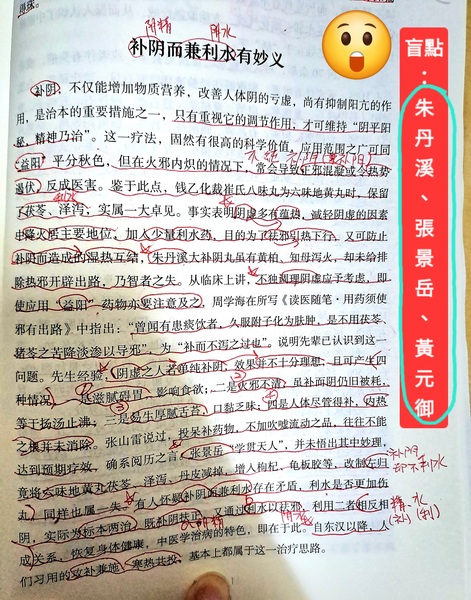 得珠。
阴精 阴水
补阴而兼利水有妙义
补阴,不仅能增加物质营养,改善人体阴的亏虚,尚有抑制阳亢的作
用,是治本的重要措施之一,只有重视它的调节作用,才可维持“阴平阳
秘,精神乃治”。这一疗法,固然有很高的科学价值,应用范围之广可同
“益阳”平分秋色,但在火邪内炽的情况下,常会导致正邪混凝或令热势
遏伏,反成医害。鉴于此点,钱乙化裁崔氏八味丸为六味地黄丸时,保留
利水
了茯苓、泽泻,实属一大卓见。事实表明阴虚多有蕴热,减轻阴虚的因素
中降火居主要地位,加入少量利水药,目的为了祛邪引热下行,又可防止
补阴而造成的湿热互结,朱丹溪大补阴丸虽有黄柏、知母泻火,却未给排
除热邪开辟出路,乃智者之失。从临床上讲,不独调理阴虚应予考虑,即
使应用“益阳”药物亦要注意及之。周学海在所写《读医随笔·用药须使
邪有出路》中指出:“曾闻有患痰饮者,久服附子化为肤肿,是不用茯苓、
猪苓之苦降淡渗以导邪”,为“补而不泻之过也”。说明先辈已认识到这一
问题。先生经验,阴虚之人若单纯补阴,效果并不十分理想,且可产生四
种情况。一是滋腻碍胃,影响食欲;二是火邪不清,虽补而阴仍旧被耗,
等于扬汤止沸;三是易生厚腻舌苔,口黏乏味;四是人体尽管得补,内热
之根并未消除。张山雷说过,投呆补药物,不加吹嘘流动之品,往往不能
达到预期疗效,确系阅历之言。张景岳“学贯天人”,并未悟出其中妙理,
补阴
却不利水
竟将六味地黄丸茯苓、泽泻、丹皮减掉,增入枸杞、龟板胶等,改制左归
丸,同样也属一失。有人怀疑补阴而兼利水存在矛盾,利水是否更加伤
阴,实际当标本两治,既补阴扶正,又通过利水以祛邪,利用二者相反相
精、水
(补)(利)
成关系,恢复身体健康,中医学治病的特色,即在于此。自东汉以降,人
们习用的攻补兼施、寒热共投,基本上都属于这一治疗思路。
1
盲點
:
朱丹溪、張景岳、黃元御